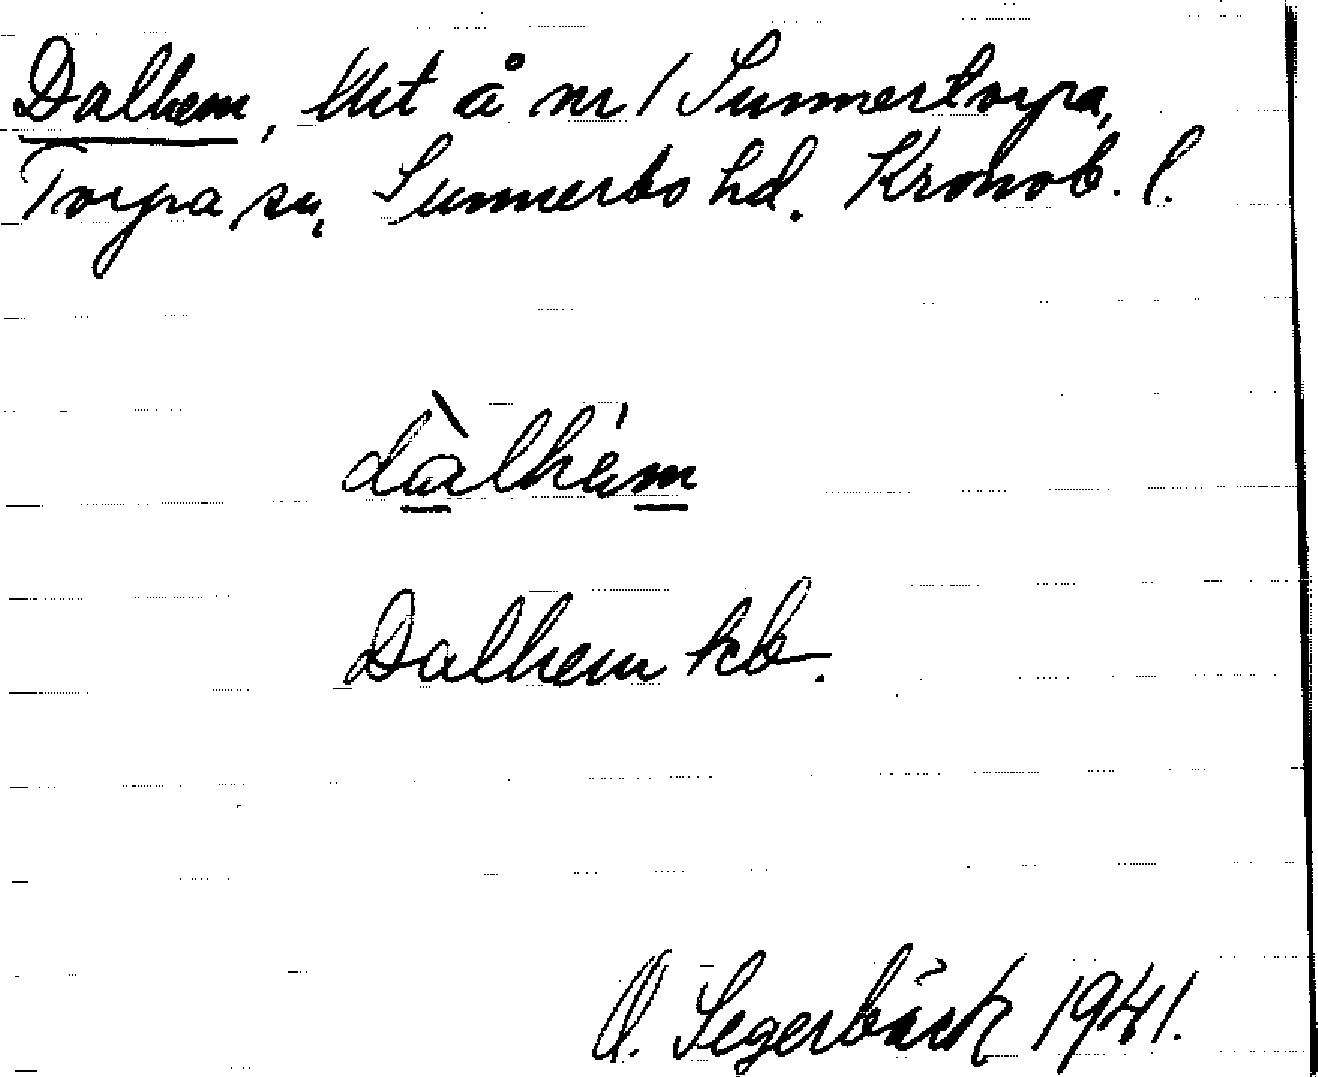 Dalhem, Utet å nr 1 Sunnertorpa,
Torpa sn, Sunnerbo hd. Kronob. l.
dàlhém
Dalhem kb.
O. Segerbäck 1941.